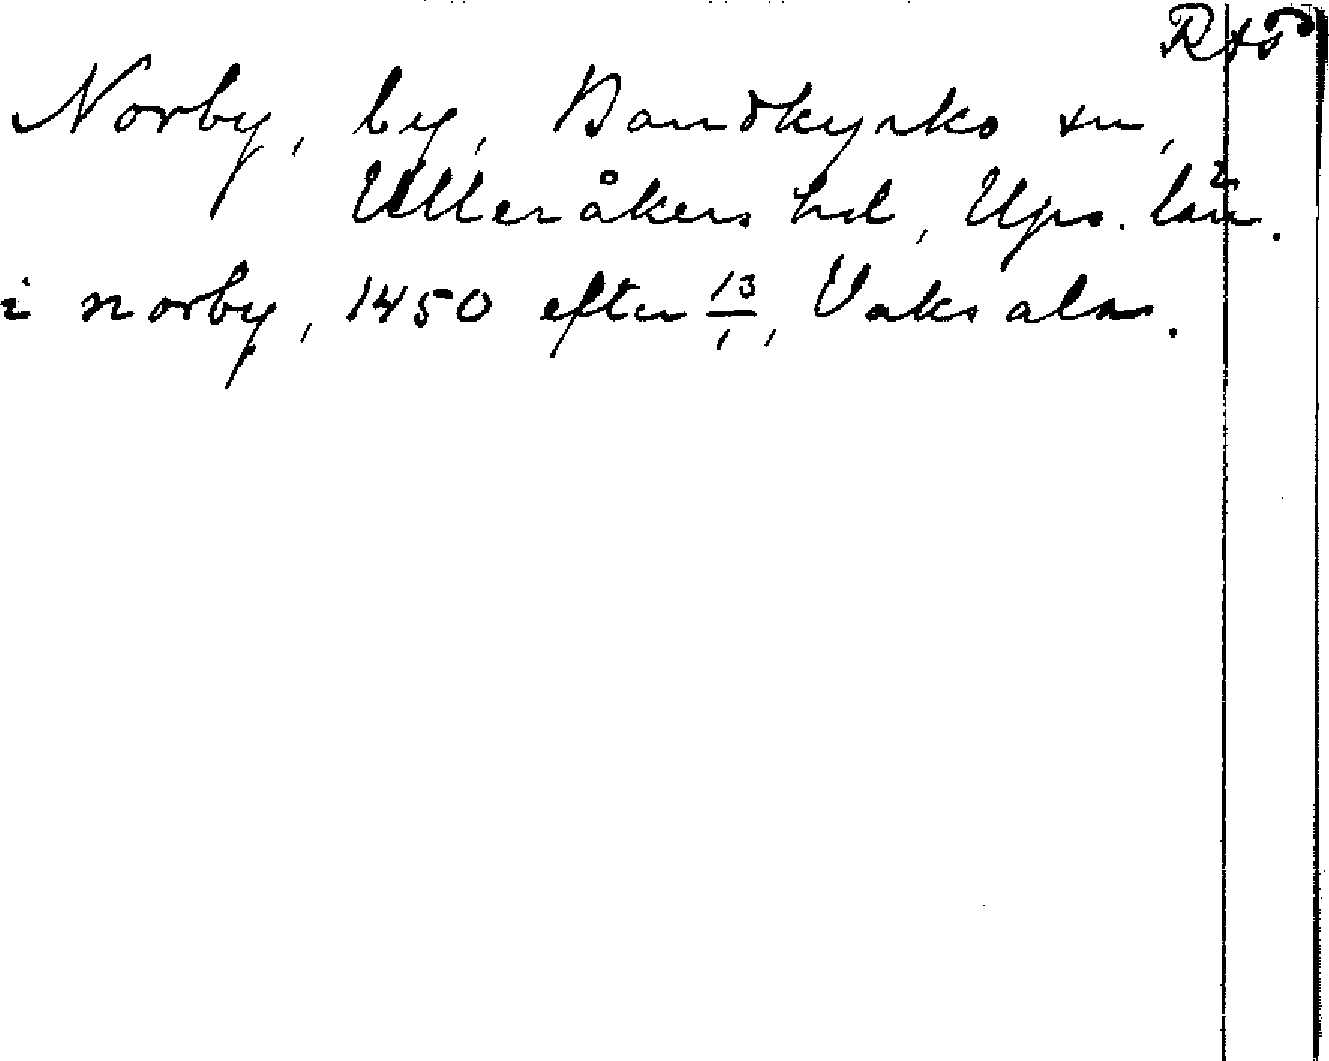 Norby, by, Bondkyrko sn,
Ulleråkers hd, Ups. län.
i norby, 1450 efter 13/1, Vaksala.